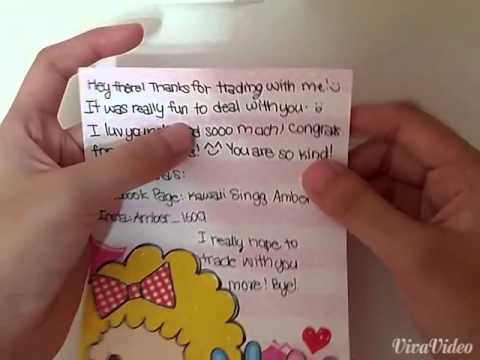 Hey there! Thanks for trading with me!
It was really fun to deal with you.
I luv you sooo mach! Congrats
You are so kind!
Page: Kawaii Singg Amber
Amber_1609
I really hope to
trade with you
more! Bye!
VivaVideo